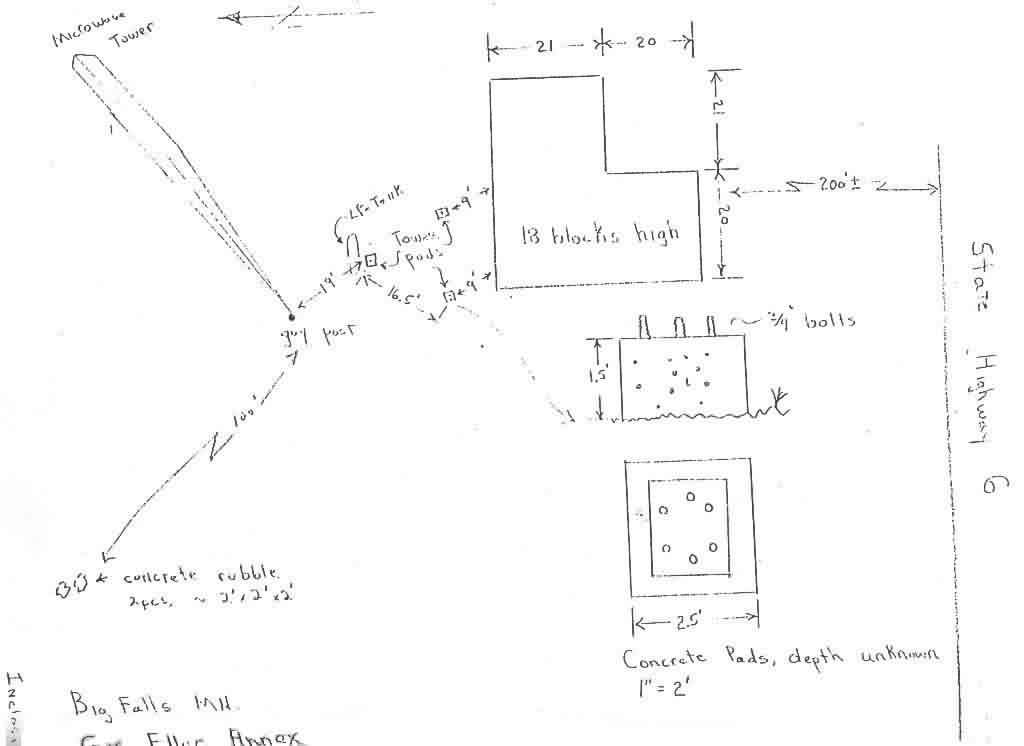 Microwave
Tower
21
20
21
20
200'±
LP-Tank
9'
Tower
pads
19'
16.5'
9'
13 blocks high
guy post
3/4" bolts
1.5'
100'
State Highway 6
concrete rubble
2 pcs, ~ 2'x2'x2'
2.5'
Concrete Pads, depth unknown
1" = 2'
Big Falls MN.
Annex